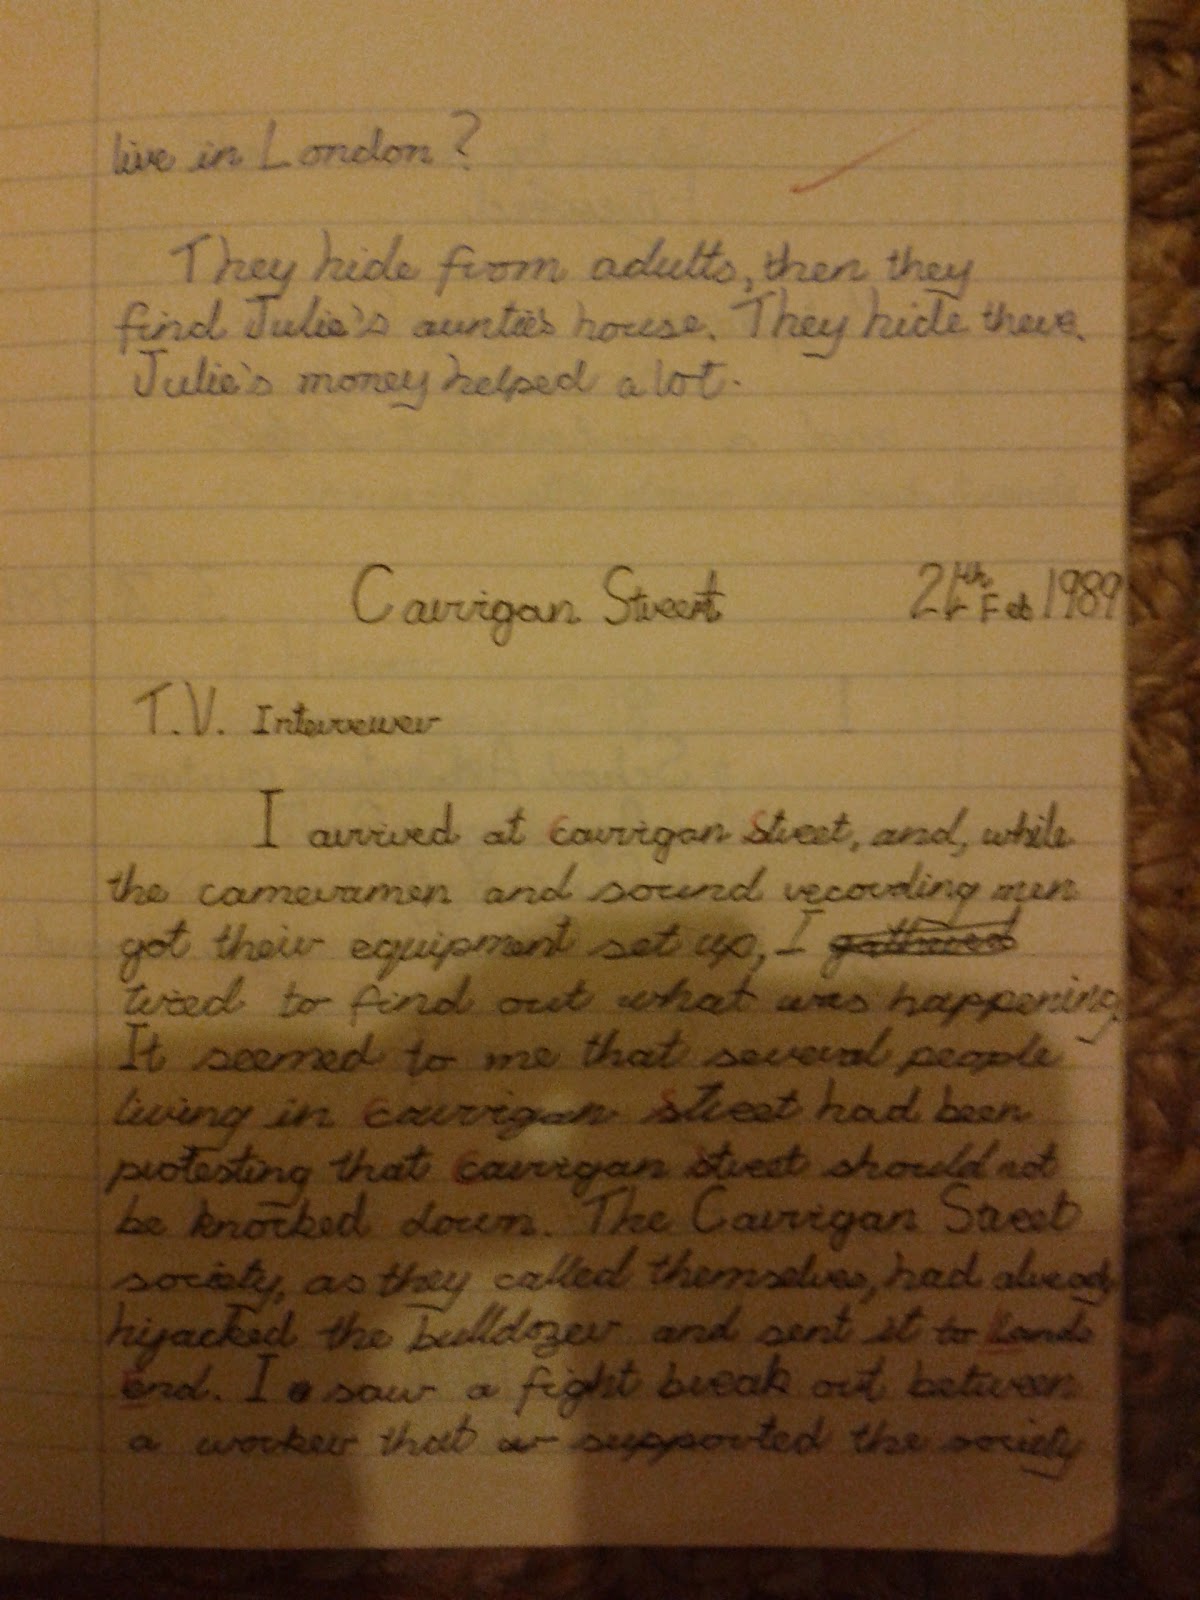 live in London?
They hide from adults, then they
find Julie's auntie's house. They hide there.
Julie's money helped a lot.
Carrigan Street 21th Feb 1989
T.V. Interviewer
I arrived at Carrigan Street, and, while
the cameramen and sound recording men
got their equipment set up, I gathered
tried to find out what was happening.
It seemed to me that several people
living in Carrigan Street had been
protesting that Carrigan Street should not
be knocked down. The Carrigan Street
society, as they called themselves, had already
hijacked the bulldozer and sent it to Lands
End. I saw a fight break out between
a worker that supported the society